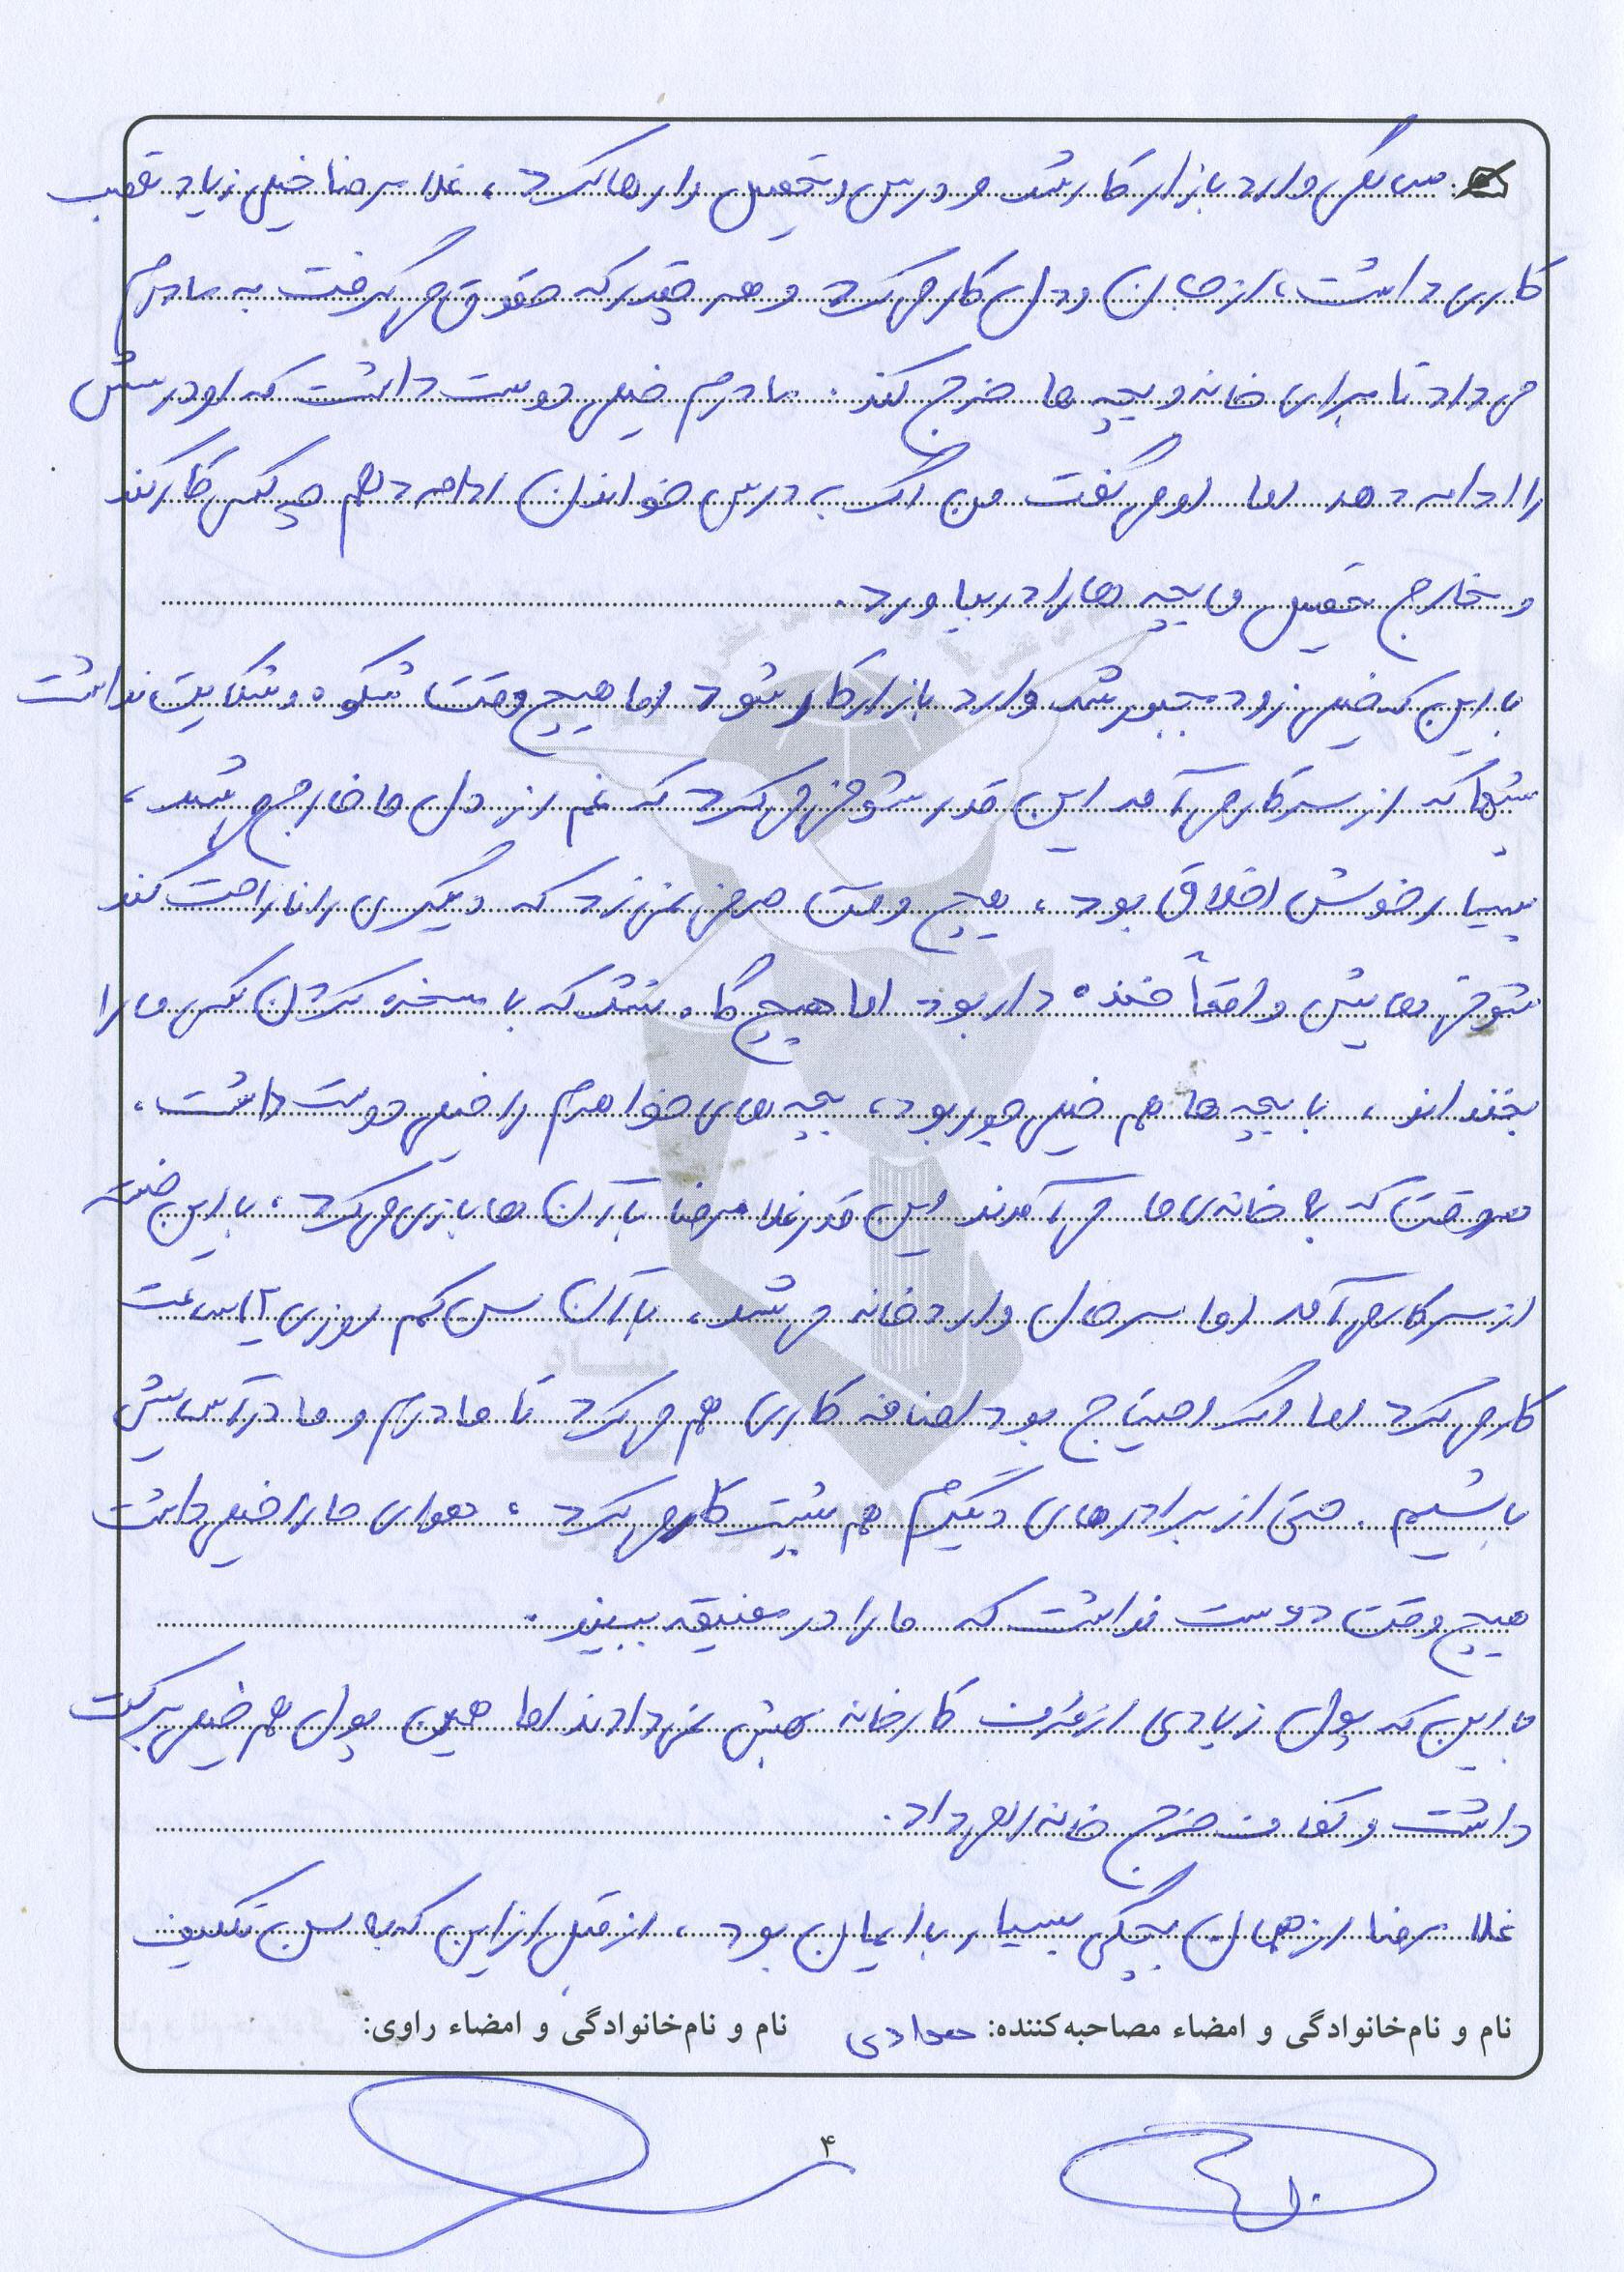 سالگی وارد بازار کار شد و درس و تحصیل را رها کرد، غلامرضا خیلی زیاد تعصب
کاری داشت، از جان و دل کار می‌کرد و هر چقدر که حقوق می‌گرفت به مادرم
می‌داد تا برای خانه و بچه ها خرج کند. مادرم خیلی دوست داشت که او درسش
را ادامه دهد اما او می‌گفت من اگر به درس خواندن ادامه دهم چه کسی کار کند
و مخارج تحصیل ما بچه ها را در بیاورد.
با این که خیلی زود مجبور شد وارد بازار کار شود اما هیچ وقت شکوه و شکایت نداشت
شبها که از سر کار می‌آمد این قدر شوخی می‌کرد که غم از دل ما خارج می‌شد،
بسیار خوش اخلاق بود، هیچ وقت حرفی نمی‌زد که دیگری را ناراحت کند
شوخی هایش واقعاً خنده دار بود اما هیچ گاه نشد که با مسخره کردن کسی ما را
بخنداند، با بچه ها هم خیلی جور بود، بچه های خواهرم را خیلی دوست داشت.
هر وقت که به خانه‌ی ما می‌آمدند این قدر غلامرضا با آن ها بازی می‌کرد، با این خسته
از سر کار می‌آمد اما سرحال وارد خانه می‌شد، با آن سن کم روزی ۱۲ ساعت
کار می‌کرد اما اگر احتیاج بود اضافه کاری هم می‌کرد تا مادرم و ما در آسایش
باشیم. حتی از برادرهای دیگرم هم بیشتر کار می‌کرد، هوای ما را خیلی داشت
هیچ وقت دوست نداشت که ما را در مضیقه ببیند.
با این که پول زیادی از طرف کارخانه بهش نمی‌دادند اما همین پول هم خیلی برکت
داشت و کفاف خرج خانه را می‌داد.
غلامرضا از همان بچگی بسیار با ایمان بود، از قبل از این که به سن تکلیف
نام و نام‌خانوادگی و امضاء مصاحبه‌کننده: نام و نام‌خانوادگی و امضاء راوی:
۴